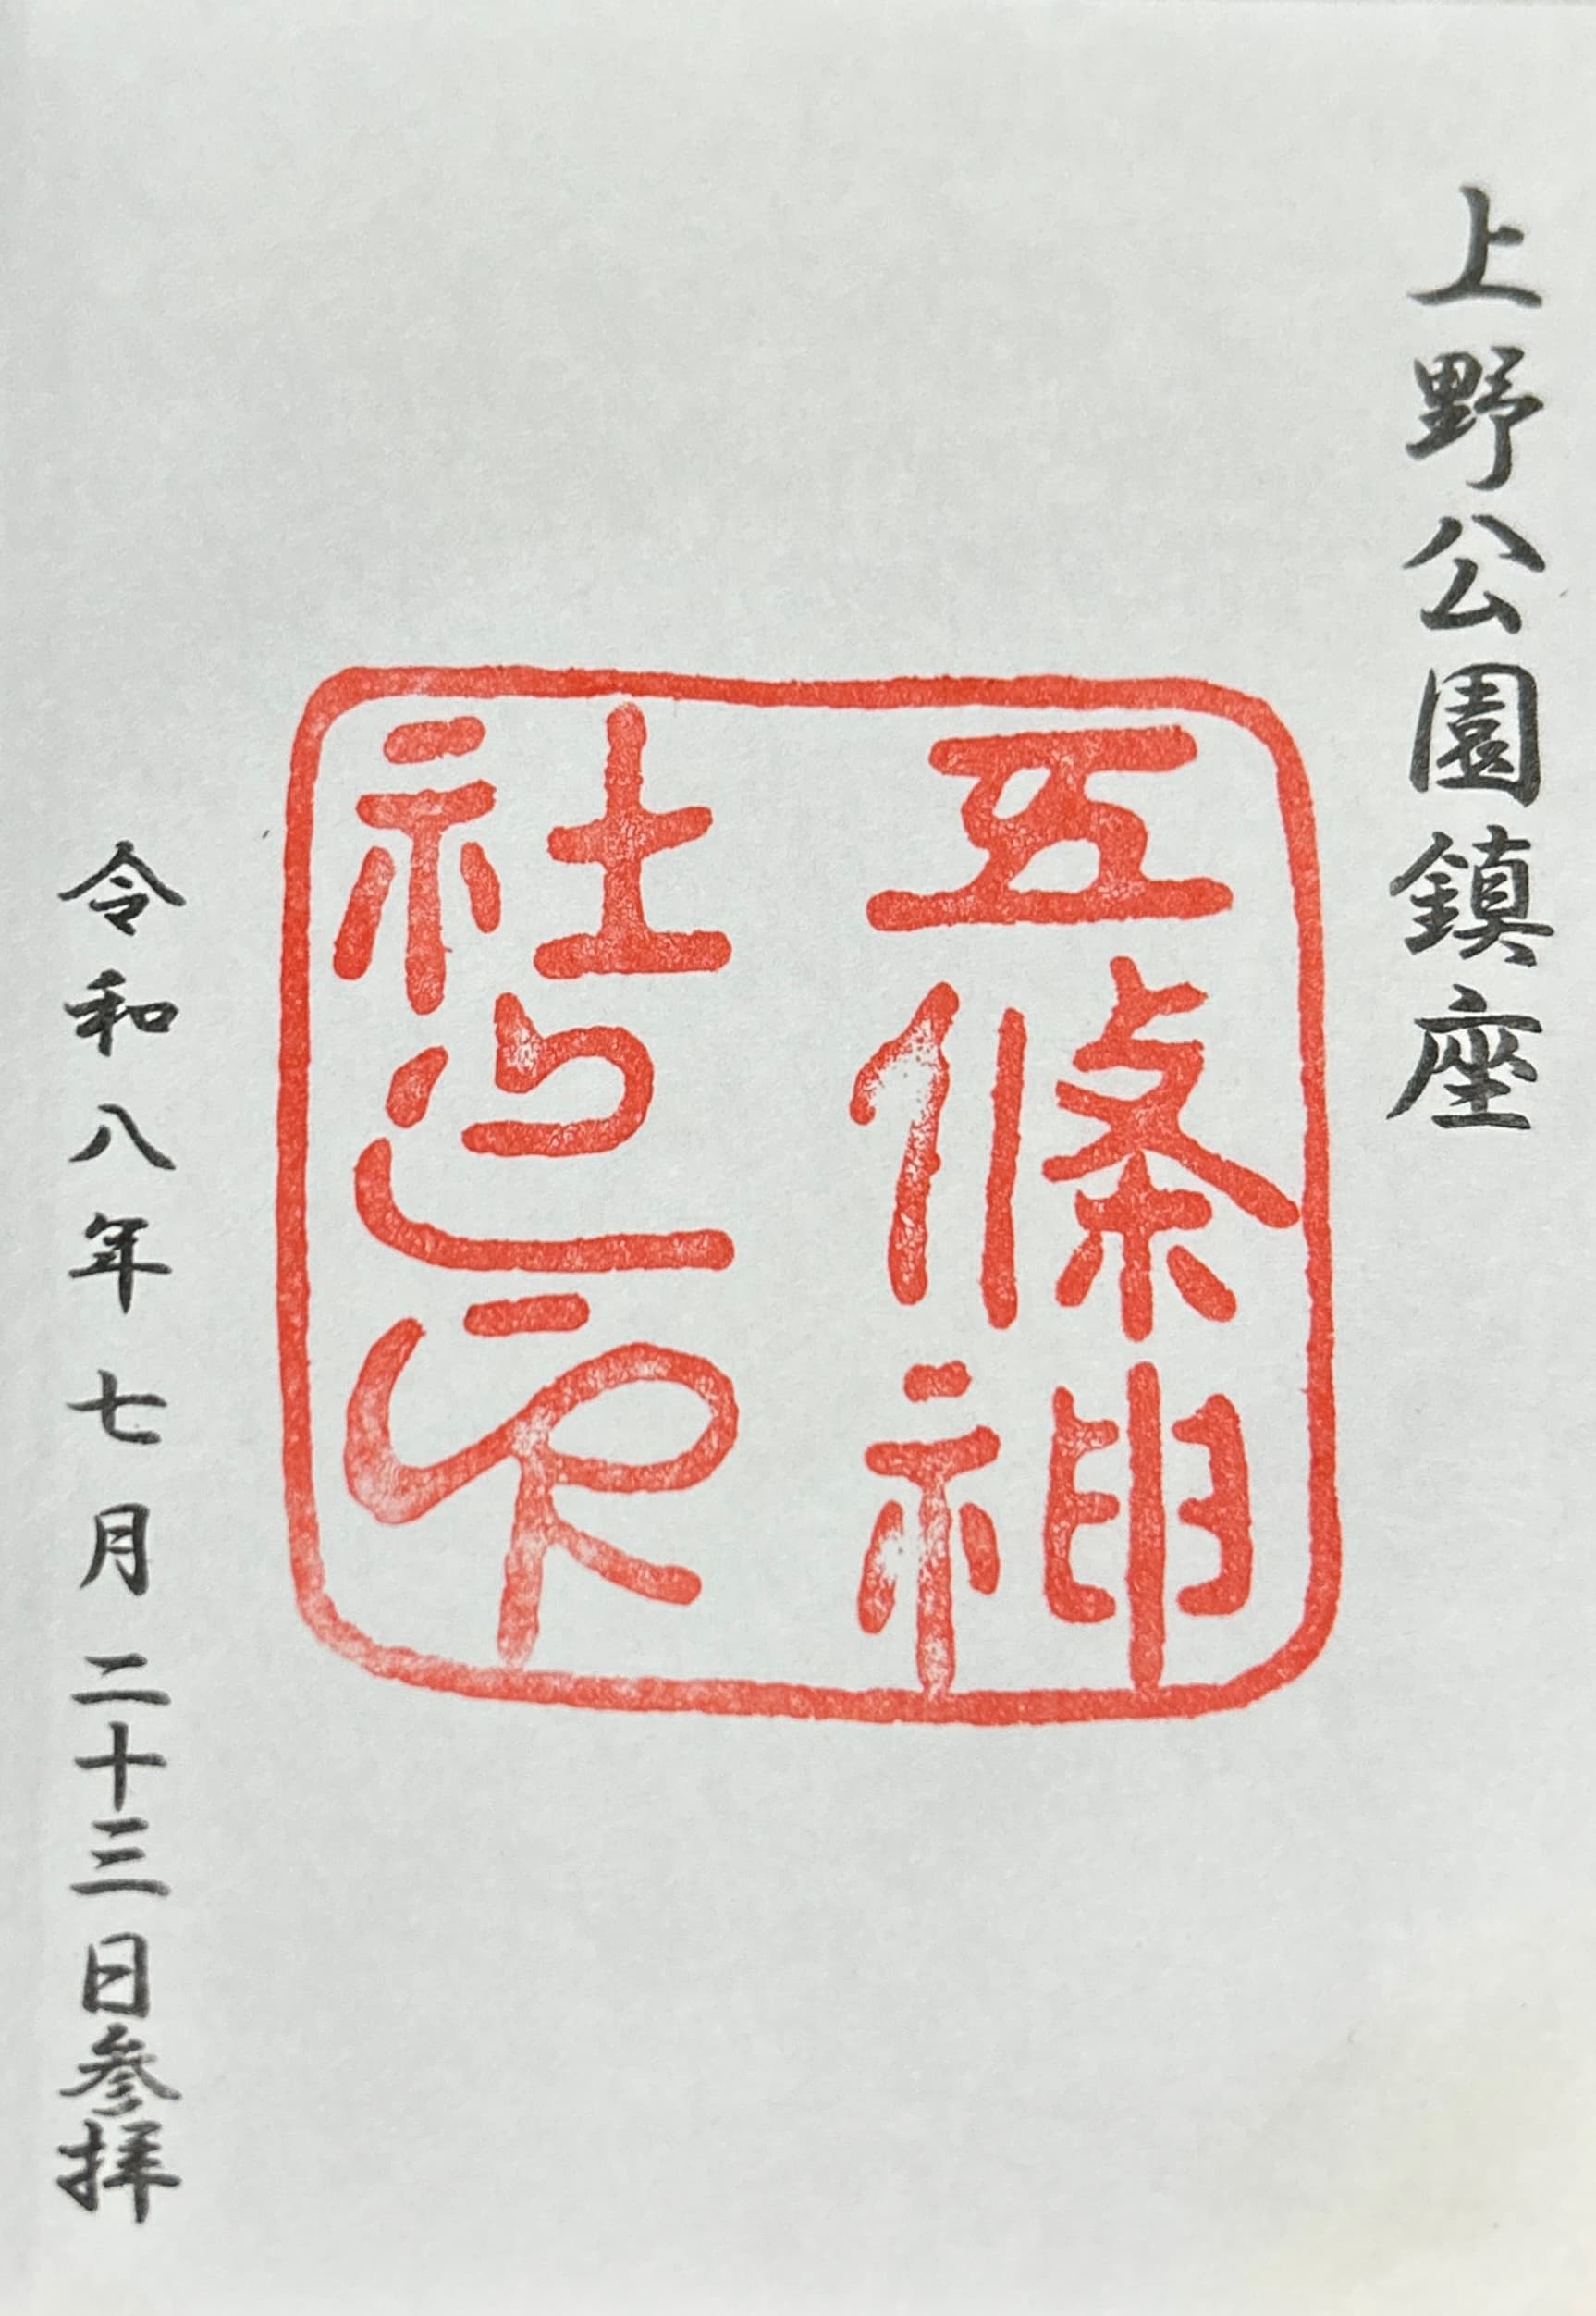 上野公園鎮座
五條神
社之印
令和八年七月二十三日参拝